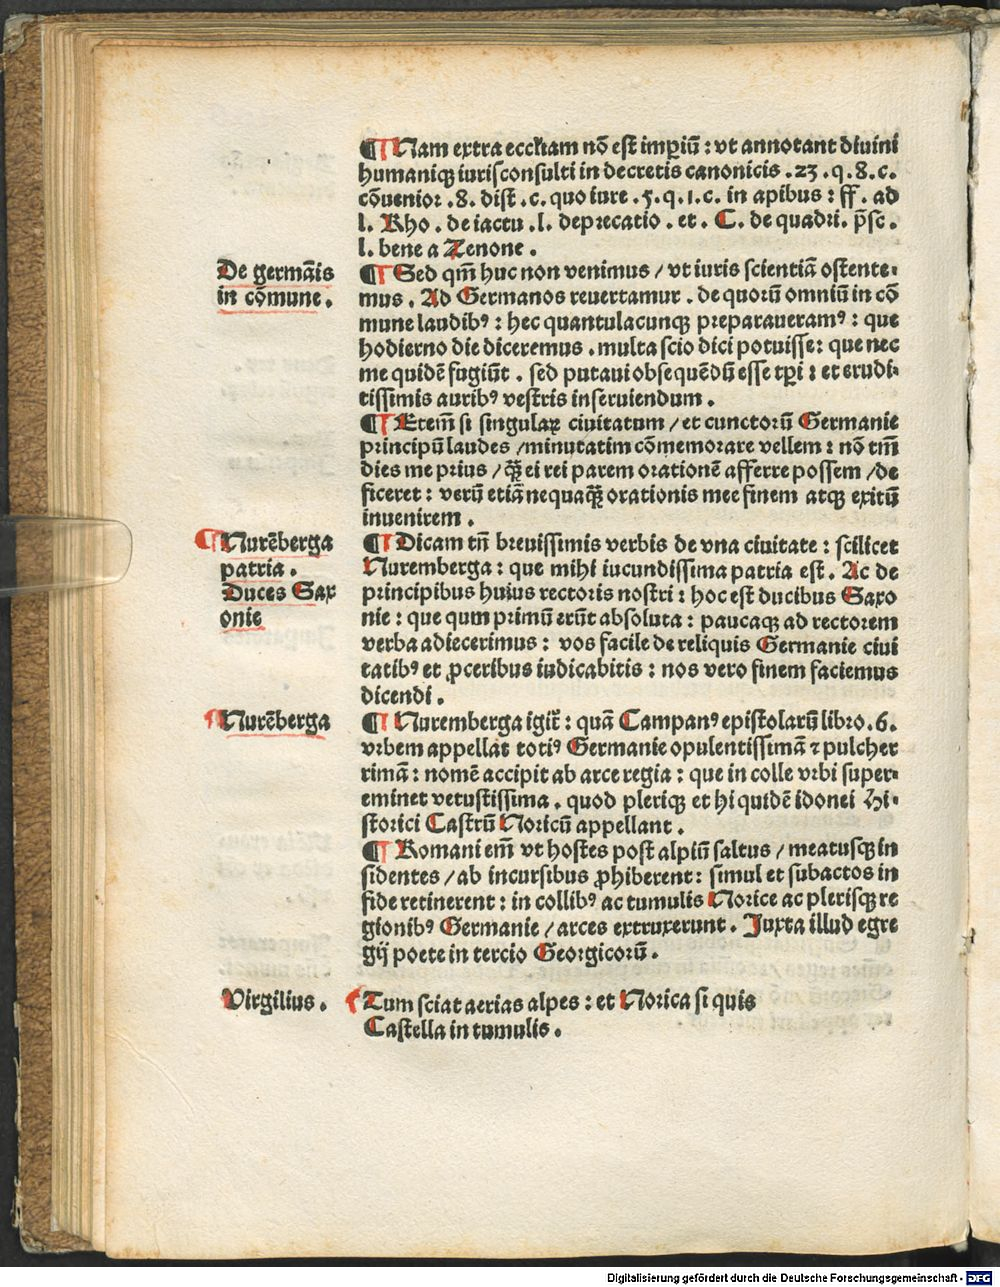 ¶ Nam extra eccl'iam nō est imꝑiū : vt annotant diuini
humaniqꝫ iurisconsulti in decretis canonicis . 23 . q . 8 . c .
cōuenior . 8 . dist . c . quo iure . 5 . q . 1 . c . in apibus : ff . ad
l . Rho . de iactu . l . deprecatio . et . C . de quadri . p̄sc .
l . bene a Zenone .
De germāis
in cōmune .
¶ Sed qm̄ huc non venimus / vt iuris scientiā ostente-
mus . Ad Germanos reuertamur . de quorū omniū in cō
mune laudibꝰ : hec quantulacunqꝫ preparaueramꝰ : que
hodierno die diceremus . multa scio dici potuisse : que nec
me quidē fugiūt . sed putaui obsequēdū esse tꝑi : et erudi-
tissimis auribꝰ vestris inseruiendum .
¶ Etem̄ si singulaꝝ ciuitatum / et cunctorū Germanie
principū laudes / minutatim cōmemorare vellem : nō tm̄
dies me prius / qꝫ̄ ei rei parem orationē afferre possem / de
ficeret : verū etiā nequaqꝫ̄ orationis mee finem atqꝫ exitū
inuenirem .
¶ Nurēberga
patria .
Duces Sax
onie
¶ Dicam tn̄ breuissimis verbis de vna ciuitate : scilicet
Nuremberga : que mihi iucundissima patria est . Ac de
principibus huius rectoris nostri : hoc est ducibus Saxo
nie : que qum primū erūt absoluta : paucaqꝫ ad rectorem
verba adiecerimus : vos facile de reliquis Germanie ciui
tatibꝰ et ꝓceribus iudicabitis : nos vero finem faciemus
dicendi .
¶ Nurēberga
¶ Nuremberga igit᷑ : quā Campanꝰ epistolarū libro . 6 .
vrbem appellat totiꝰ Germanie opulentissimā ⁊ pulcher
rimā : nomē accipit ab arce regia : que in colle vrbi super-
eminet vetustissima . quod pleriqꝫ et hi quidē idonei Hi-
storici Castrū Noricū appellant .
¶ Romani em̄ vt hostes post alpiū saltus / meatusqꝫ in
sidentes / ab incursibus ꝓhiberent : simul et subactos in
fide retinerent : in collibꝰ ac tumulis Norice ac plerisqꝫ re
gionibꝰ Germanie / arces extruxerunt . Juxta illud egre
gij poete in tercio Georgicorū .
Virgilius .
Tum sciat aerias alpes : et Norica si quis
Castella in tumulis .
Digitalisierung gefördert durch die Deutsche Forschungsgemeinschaft - DFG